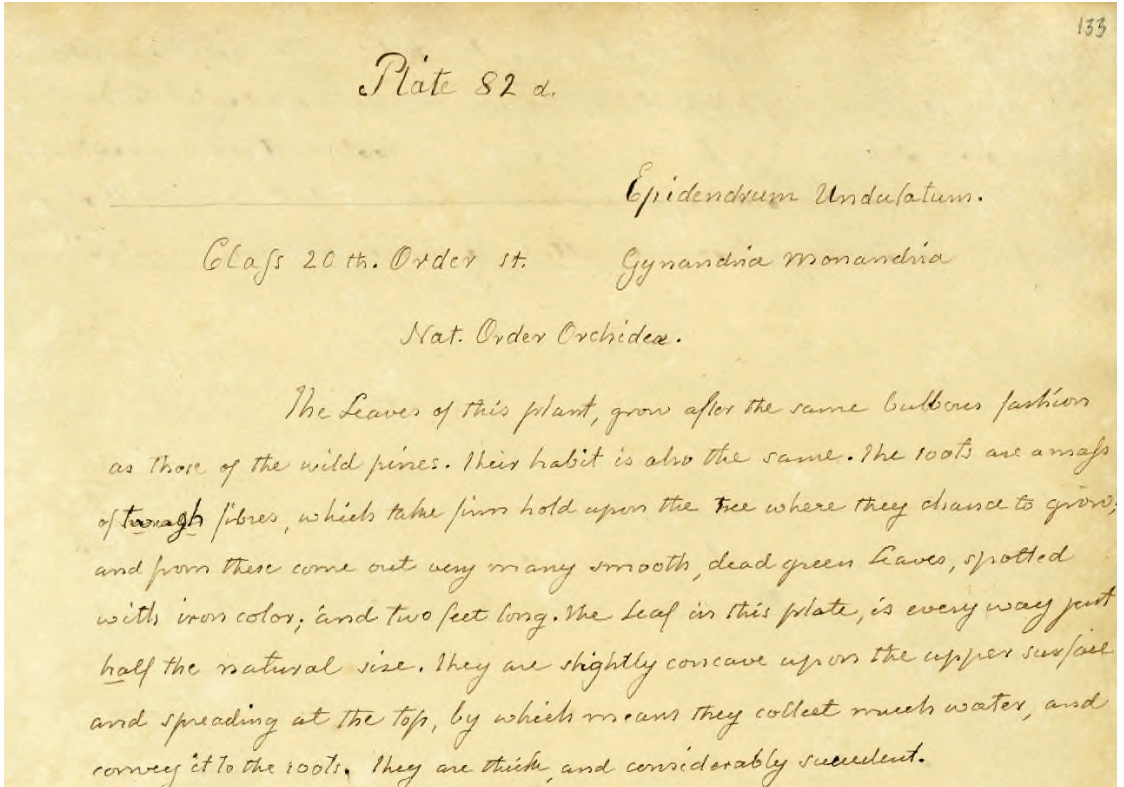 133
Plate 82 d.
Epidendrum Undulatum.
Class 20th. Order st. Gynandria Monandria
Nat. Order Orchideæ.
The Leaves of this plant, grow after the same bulbous fashion
as those of the wild pines. Their habit is also the same. The roots are a mass
of tough fibres, which take firm hold upon the tree where they chance to grow;
and from these come out very many smooth, dead green Leaves, spotted
with iron color; and two feet long. The Leaf in this plate, is every way just
half the natural size. They are slightly concave upon the upper surface
and spreading at the top, by which means they collect much water, and
convey it to the roots. They are thick, and considerably succulent.